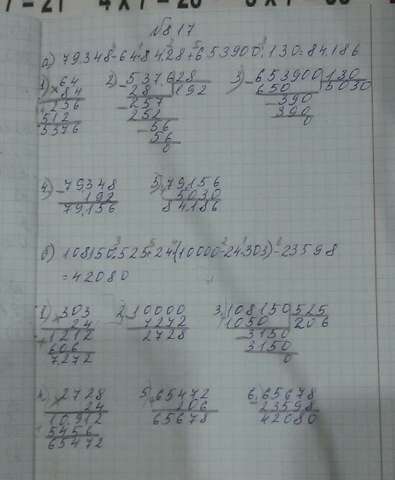 №817
а) 79348-64·84:28+653900:130=84186
1) ×64
84
256
512
5376
2) -5376|28
28 192
-257
252
-56
56
0
3) -653900|130
650 5030
-390
390
0
4) -79348
192
79156
5) 79156
5030
84186
б) 108150:525+24·(10000-24·303)-23598
=42080
1) ×303
24
1212
606
7272
2) -10000
7272
2728
3) 108150|525
1050 206
-3150
3150
0
4) ×2728
24
10912
5456
65472
5) 65472
206
65678
6) 65678
23598
42080